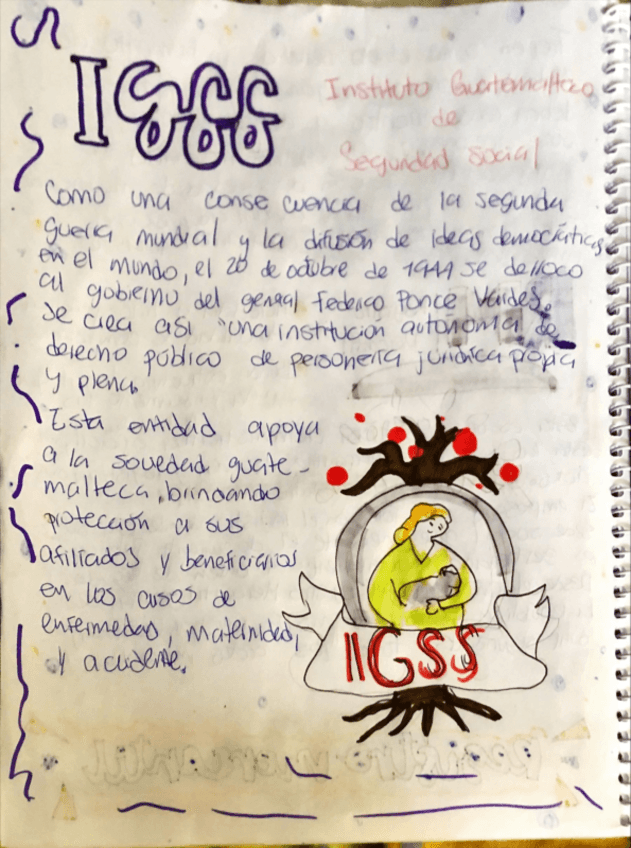 IGSS
Instituto Guatemalteco
de
Seguridad social
Como una conse cuencia de la segunda
guerra mundial y la difusión de ideas democráticas
en el mundo, el 20 de octubre de 1944 se derroco
al gobierno del genral Federico Ponce Vaides.
se crea asi "una institución autonoma de
derecho público de personeria jurídica propia
y plena.
Esta entidad apoya
a la sociedad guate-
malteca, brindando
protección a sus
afiliados y beneficiarios
en los casos de
enfermedad, maternidad,
y accidente.
IIGSS
Registro mercantil